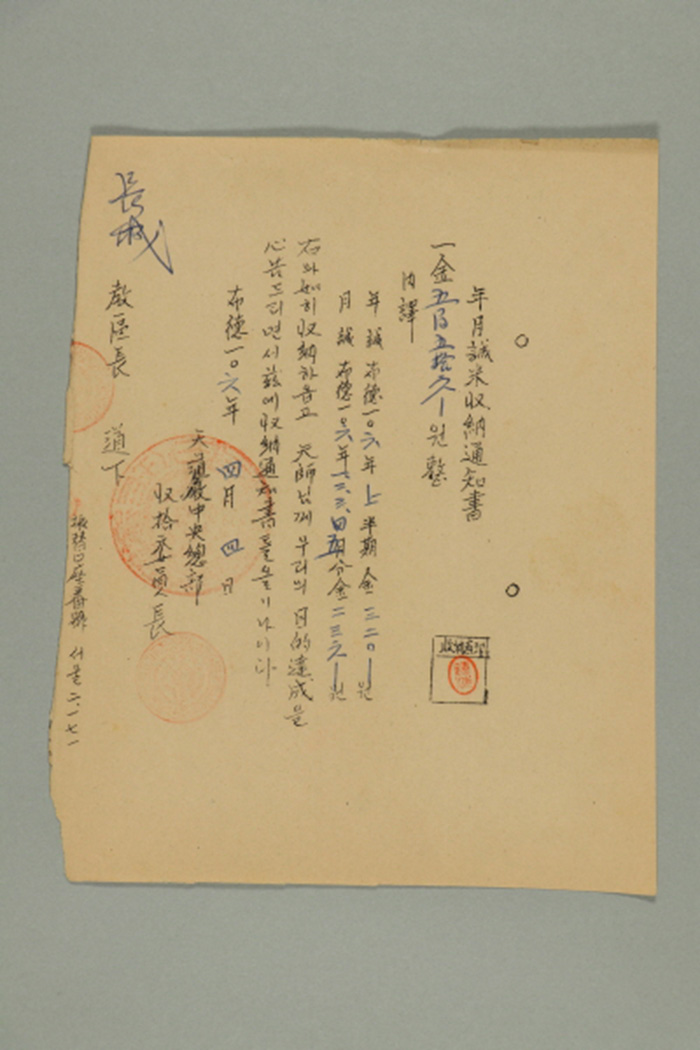 年月誠米収納通知書
一金五百五拾六원整
内譯
年誠 布德一〇六年 上半期 金 三二〇원
月誠 布德一〇六年 一、二、三、四、五月分金 二三六원
右와如히収納하옵고 天師님께 우리의 目的達成을
心告드리면서 玆에収納通知書를올리나이다
布德一〇六年 四月 四日
天道敎中央總部
収拾委員長
長城 敎區長 道下
振替口座番號 서울 二、一七一